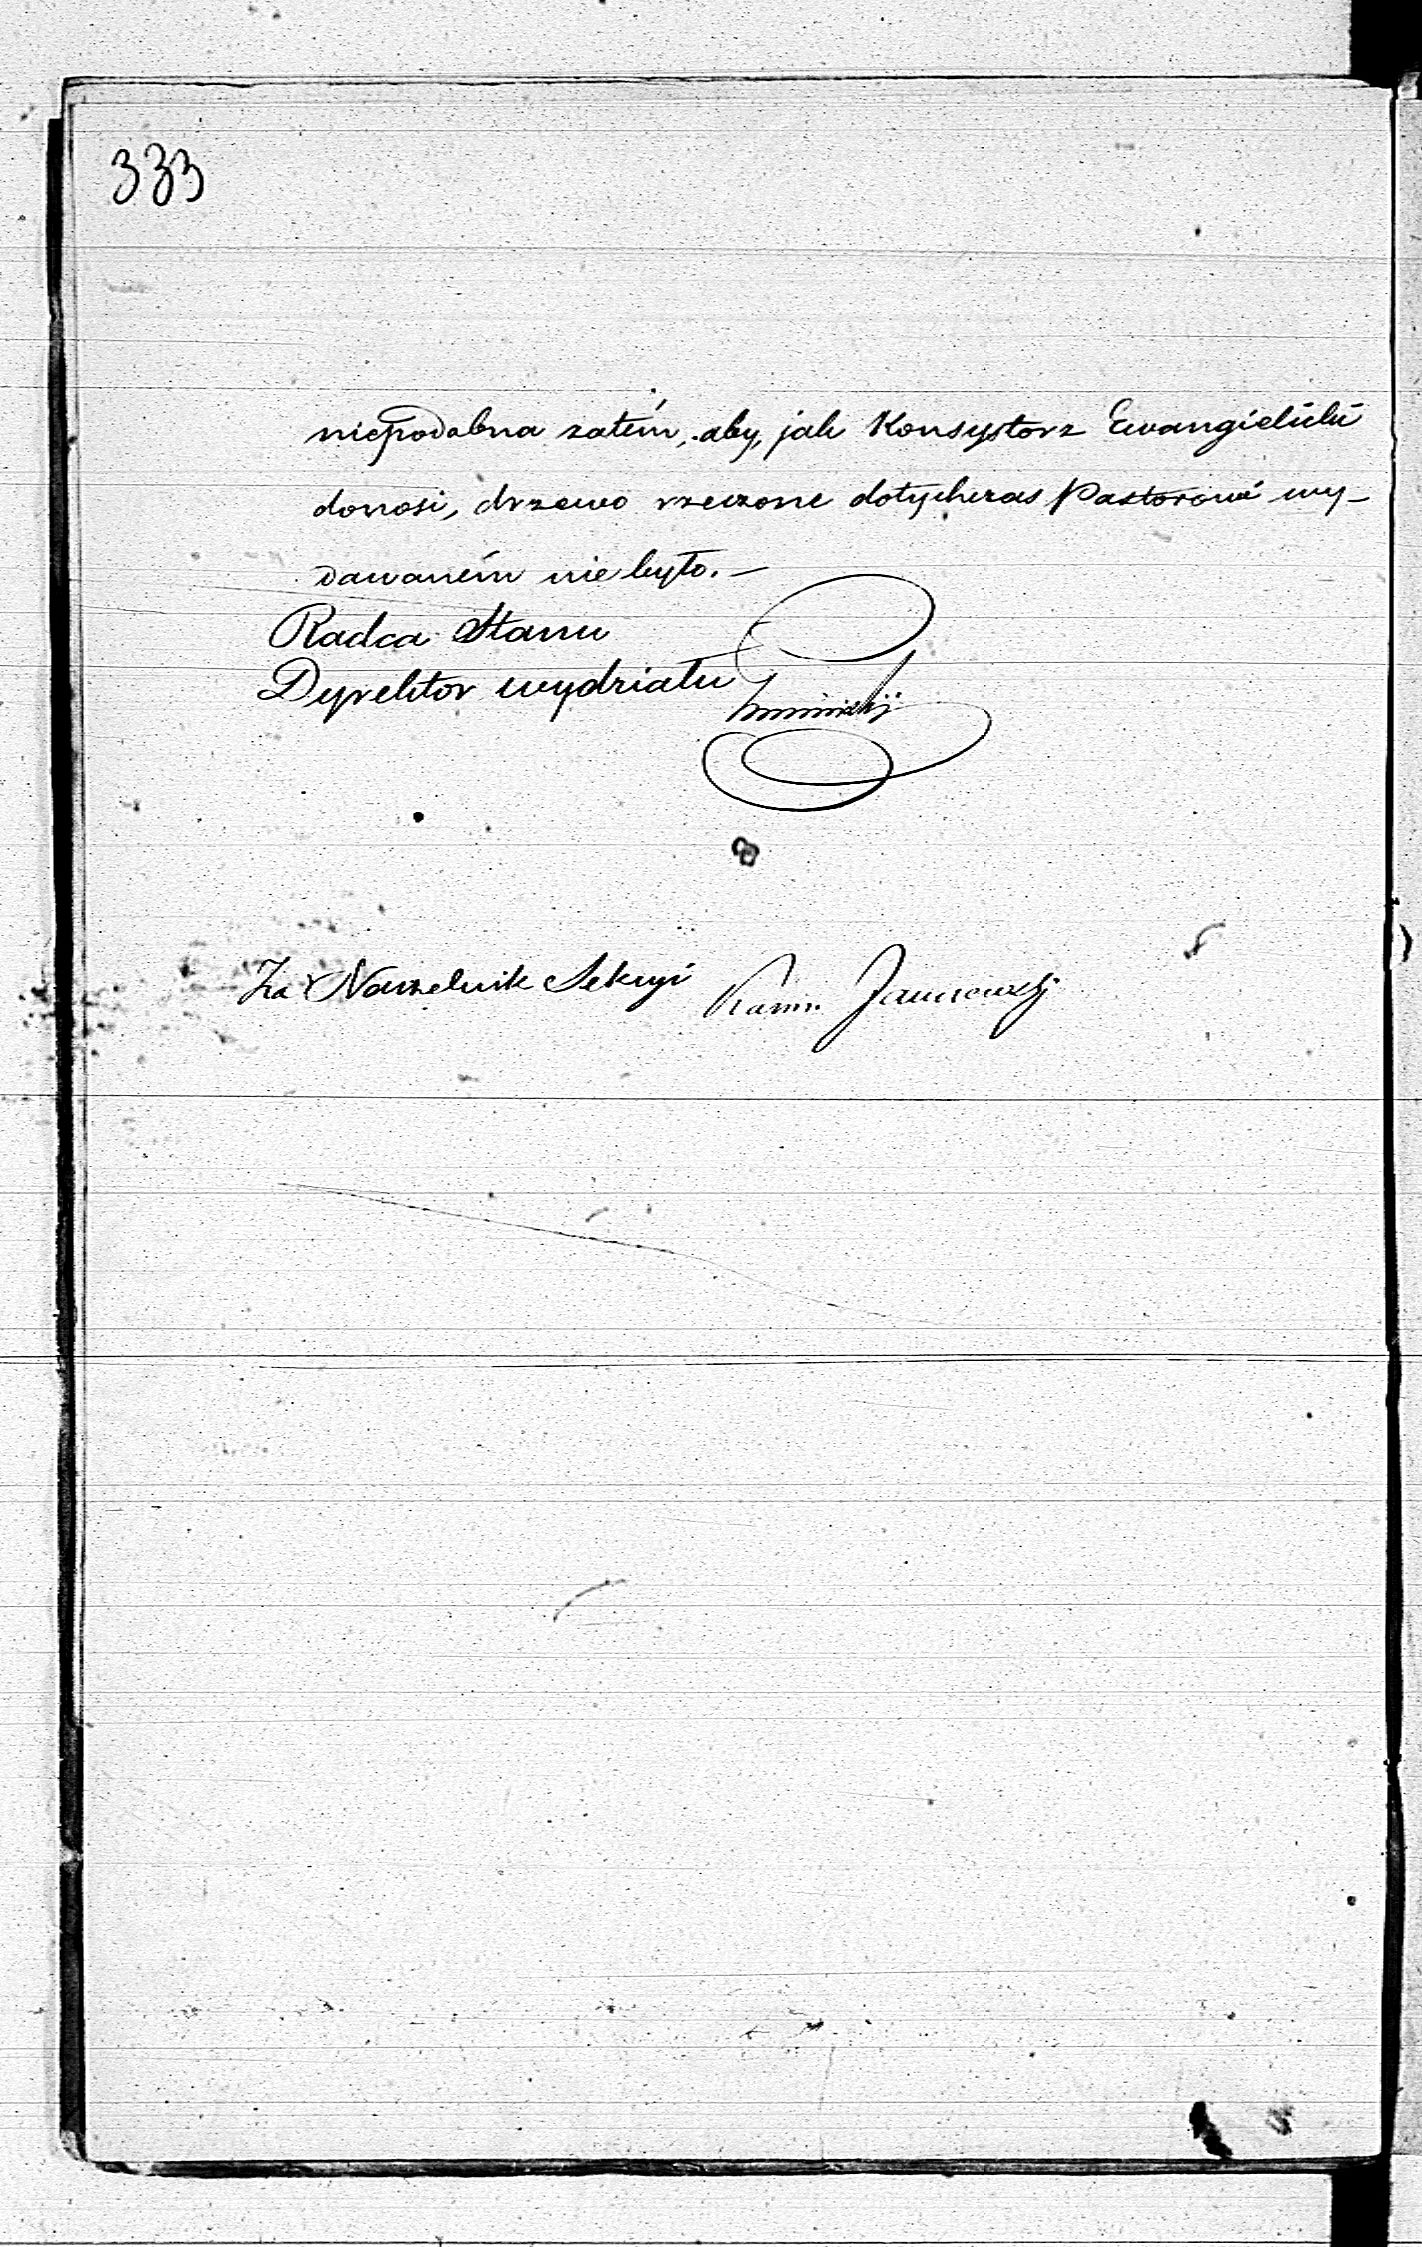 333
niepodobna zatém, aby, jak Konsystorz Ewangielicki
donosi, drzewo rzeczone dotychczas Pastorowi wy-
dawaném nie było. —
Radca Stanu
Dyrektor wydziału
Za Naczelnik Sekcyi